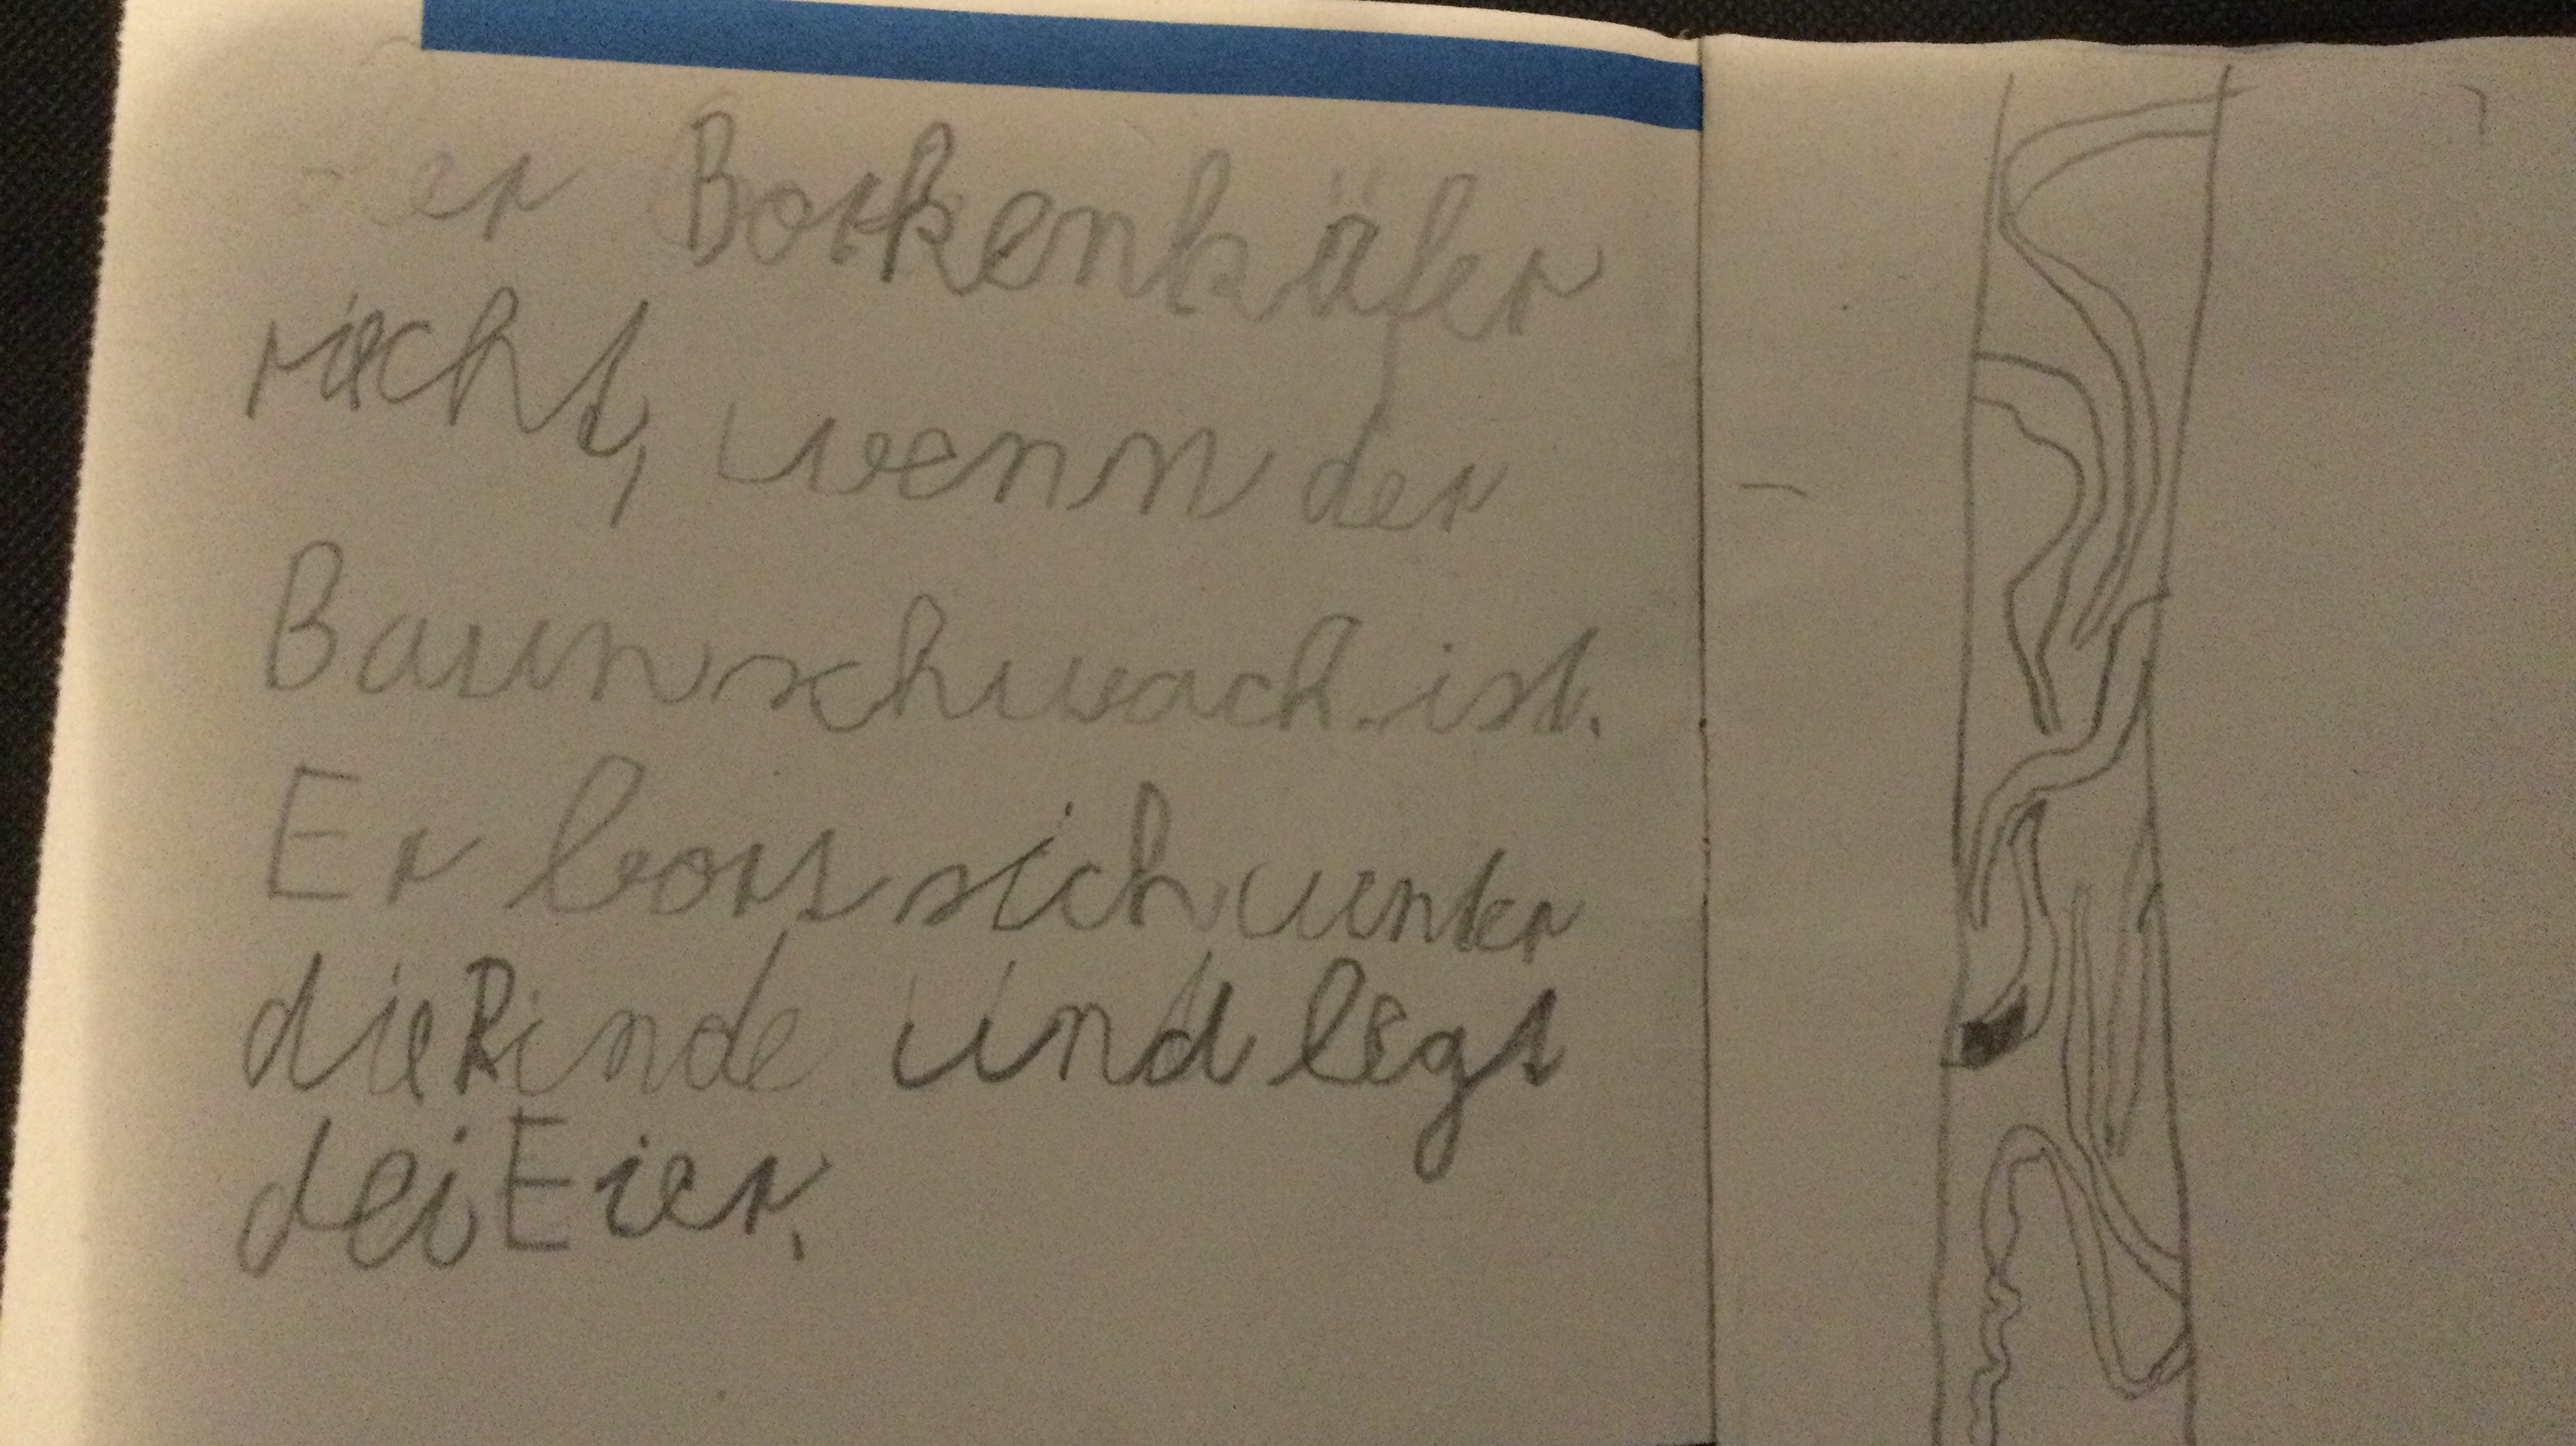 er Borkenkäfer
riecht, wenn der
Baum schwach ist.
Er bort sich unter
die Rinde und legt
dei Eier.